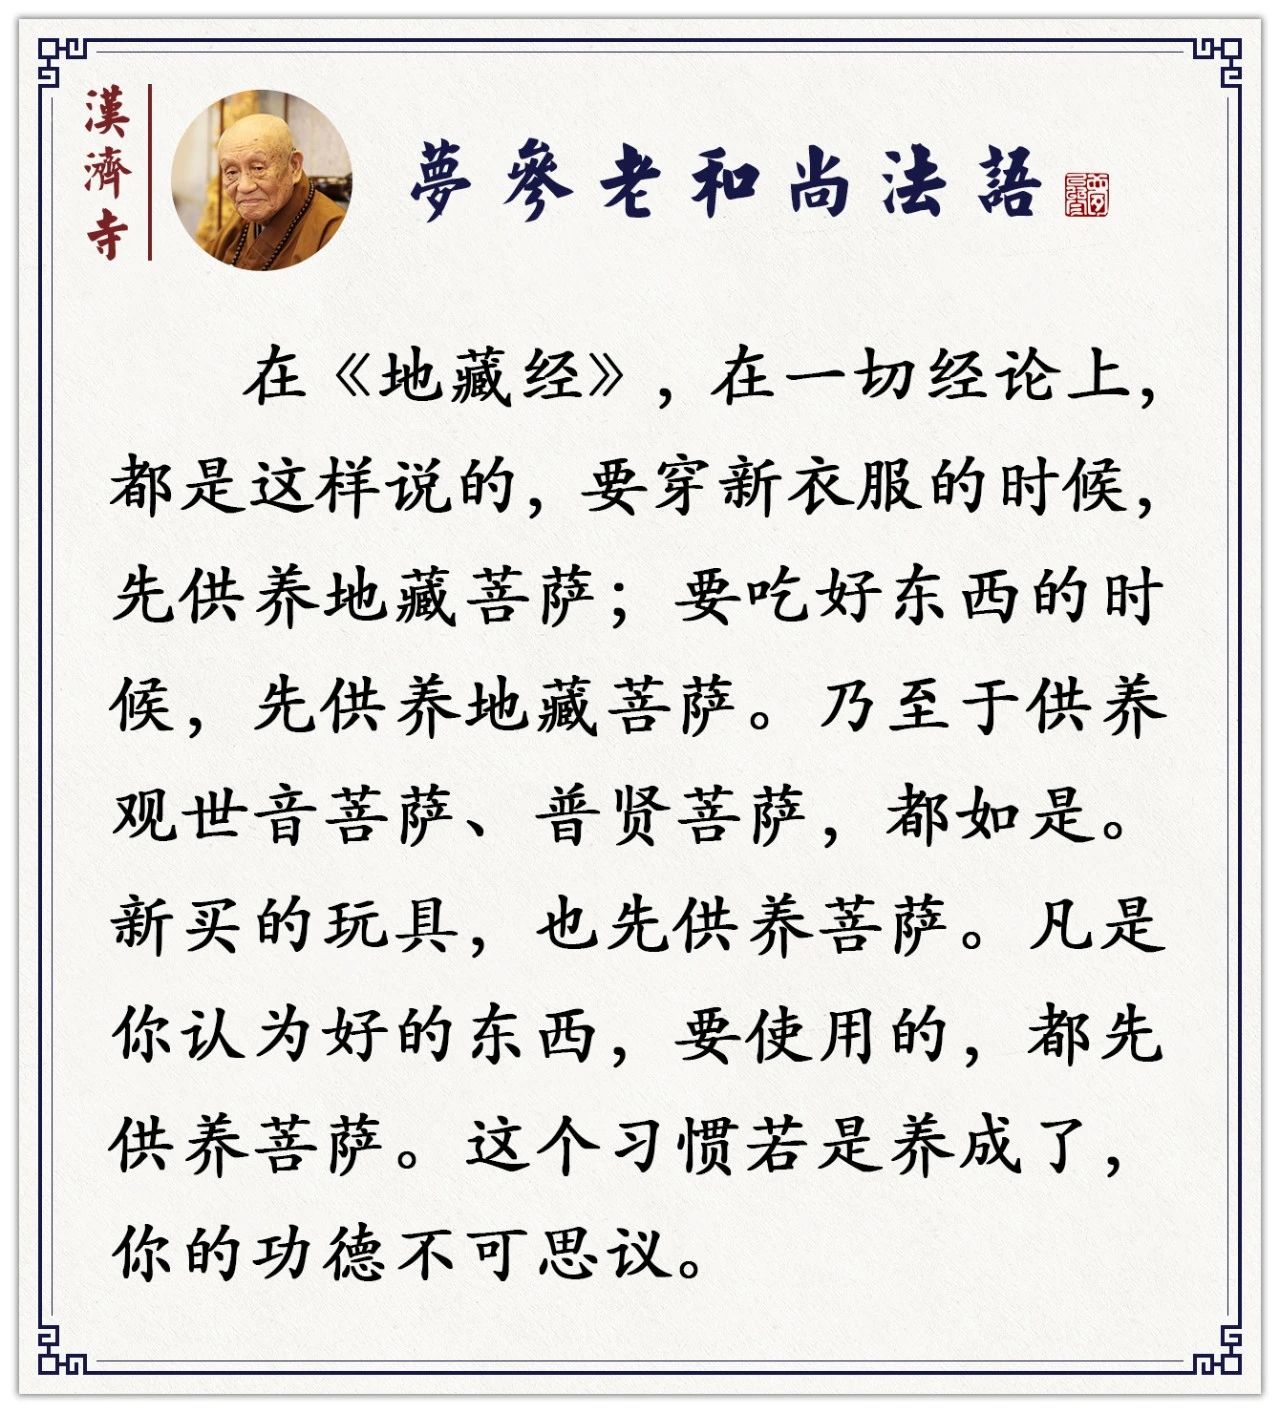 漢濟寺
夢參老和尚法語
夢參
在《地藏经》，在一切经论上，
都是这样说的，要穿新衣服的时候，
先供养地藏菩萨；要吃好东西的时
候，先供养地藏菩萨。乃至于供养
观世音菩萨、普贤菩萨，都如是。
新买的玩具，也先供养菩萨。凡是
你认为好的东西，要使用的，都先
供养菩萨。这个习惯若是养成了，
你的功德不可思议。